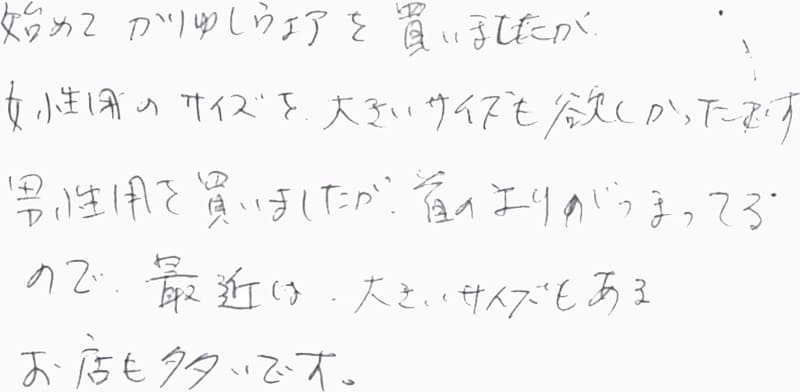 始めて かりゆしウェアを 買いましたが
女性用のサイズを、大きいサイズも欲しかったです
男性用を買いましたが、首のまわりがつまってる
ので、最近は、大きいサイズもある
お店も多いです。